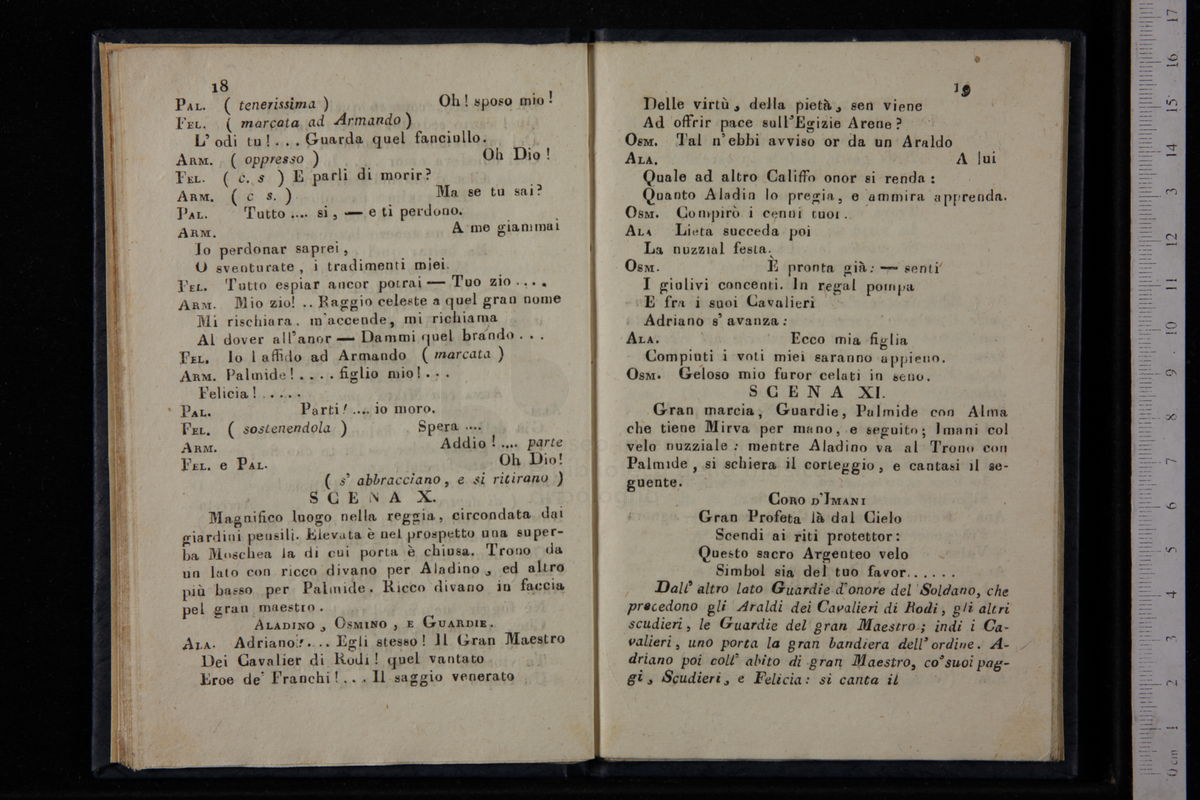 18
PAL. ( tenerissima ) Oh! sposo mio!
FEL. ( marcata ad Armando )
L' odi tu!... Guarda quel fanciullo.
ARM. ( oppresso ) Oh Dio!
FEL. ( c. s ) E parli di morir?
ARM. ( c s. ) Ma se tu sai?
PAL. Tutto .... si, — e ti perdono.
ARM. A me giammai
Io perdonar saprei,
O sventurate, i tradimenti miei.
FEL. Tutto espiar ancor potrai — Tuo zio....
ARM. Mio zio! .. Raggio celeste a quel gran nome
Mi rischiara, m'accende, mi richiama
Al dover all'anor — Dammi quel brando...
FEL. Io l affido ad Armando ( marcata )
ARM. Palmide!.... figlio mio!...
Felicia!.....
PAL. Parti!.... io moro.
FEL. ( sostenendola ) Spera ....
ARM. Addio!.... parte
FEL. e PAL. Oh Dio!
( s' abbracciano, e si ritirano )
SCENA X.
Magnifico luogo nella reggia, circondata dai
giardini pensili. Elevata è nel prospetto una super-
ba Moschea la di cui porta è chiusa. Trono da
un lato con ricco divano per Aladino, ed altro
più basso per Palmide. Ricco divano in faccia
pel gran maestro.
ALADINO, OSMINO, E GUARDIE.
ALA. Adriano!... Egli stesso! Il Gran Maestro
Dei Cavalier di Rodi! quel vantato
Eroe de' Franchi!... Il saggio venerato
19
Delle virtù, della pietà, sen viene
Ad offrir pace sull'Egizie Arene?
OSM. Tal n'ebbi avviso or da un Araldo
ALA. A lui
Quale ad altro Califfo onor si renda:
Quanto Aladin lo pregia, e ammira apprenda.
OSM. Compirò i cenni tuoi.
ALA Lieta succeda poi
La nuzzial festa.
OSM. È pronta già: — senti
I giulivi concenti. In regal pompa
E fra i suoi Cavalieri
Adriano s' avanza:
ALA. Ecco mia figlia
Compiuti i voti miei saranno appieno.
OSM. Geloso mio furor celati in seno.
SCENA XI.
Gran marcia, Guardie, Palmide con Alma
che tiene Mirva per mano, e seguito; Imani col
velo nuzziale: mentre Aladino va al Trono con
Palmide, si schiera il corteggio, e cantasi il se-
guente.
CORO D'IMANI
Gran Profeta là dal Cielo
Scendi ai riti protettor:
Questo sacro Argenteo velo
Simbol sia del tuo favor......
Dall' altro lato Guardie d'onore del Soldano, che
precedono gli Araldi dei Cavalieri di Rodi, gli altri
scudieri, le Guardie del gran Maestro; indi i Ca-
valieri, uno porta la gran bandiera dell' ordine. A-
driano poi coll' abito di gran Maestro, co'suoi pag-
gi, Scudieri, e Felicia: si canta il
0 cm 1 2 3 4 5 6 7 8 9 10 11 12 13 14 15 16 17